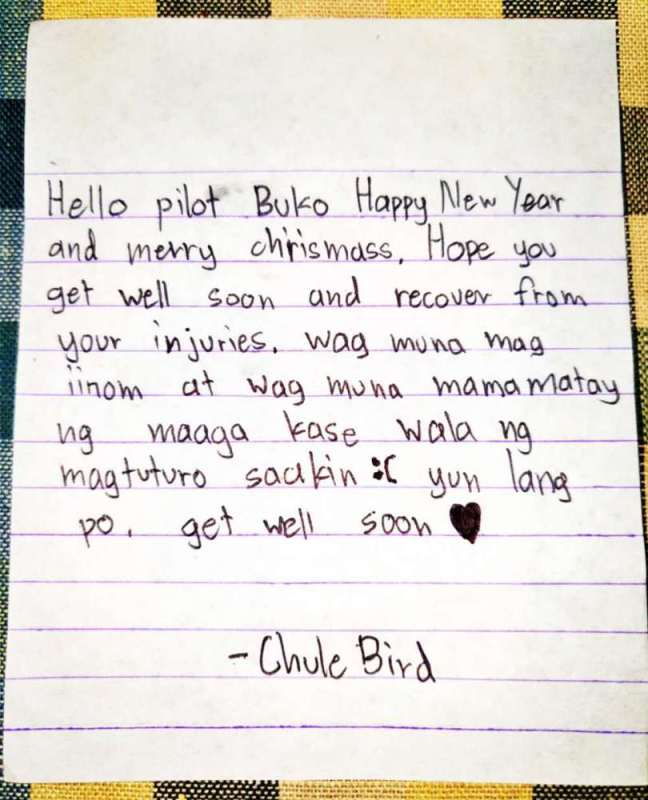 Hello pilot Buko Happy New Year
and merry chrismass. Hope you
get well soon and recover from
your injuries. wag muna mag
iinom at wag muna mamamatay
ng maaga kase wala ng
magtuturo saakin :( yun lang
po. get well soon ♥
- Chule Bird